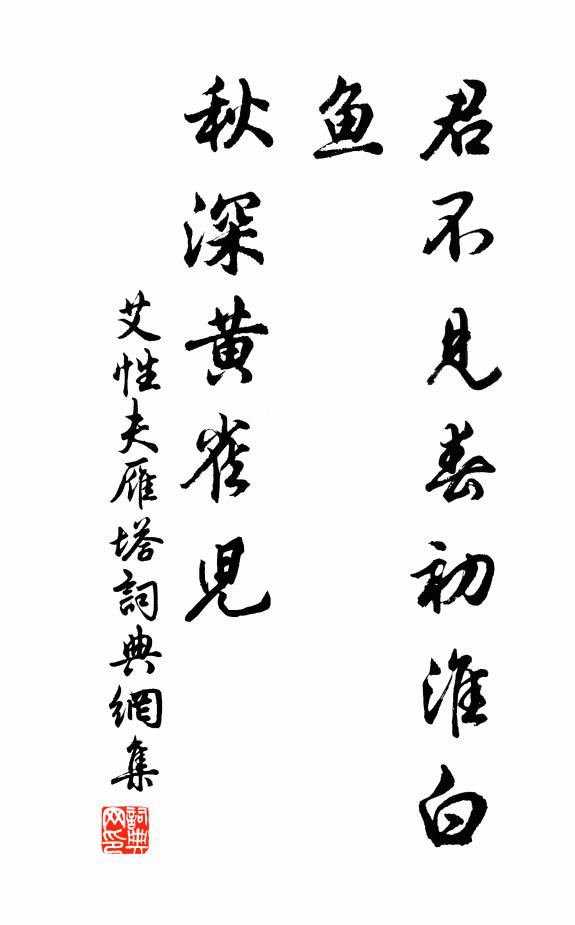 君不見春初淮白
魚
秋深黄雀児
艾性夫雁塔詞典網集
詞典
网印